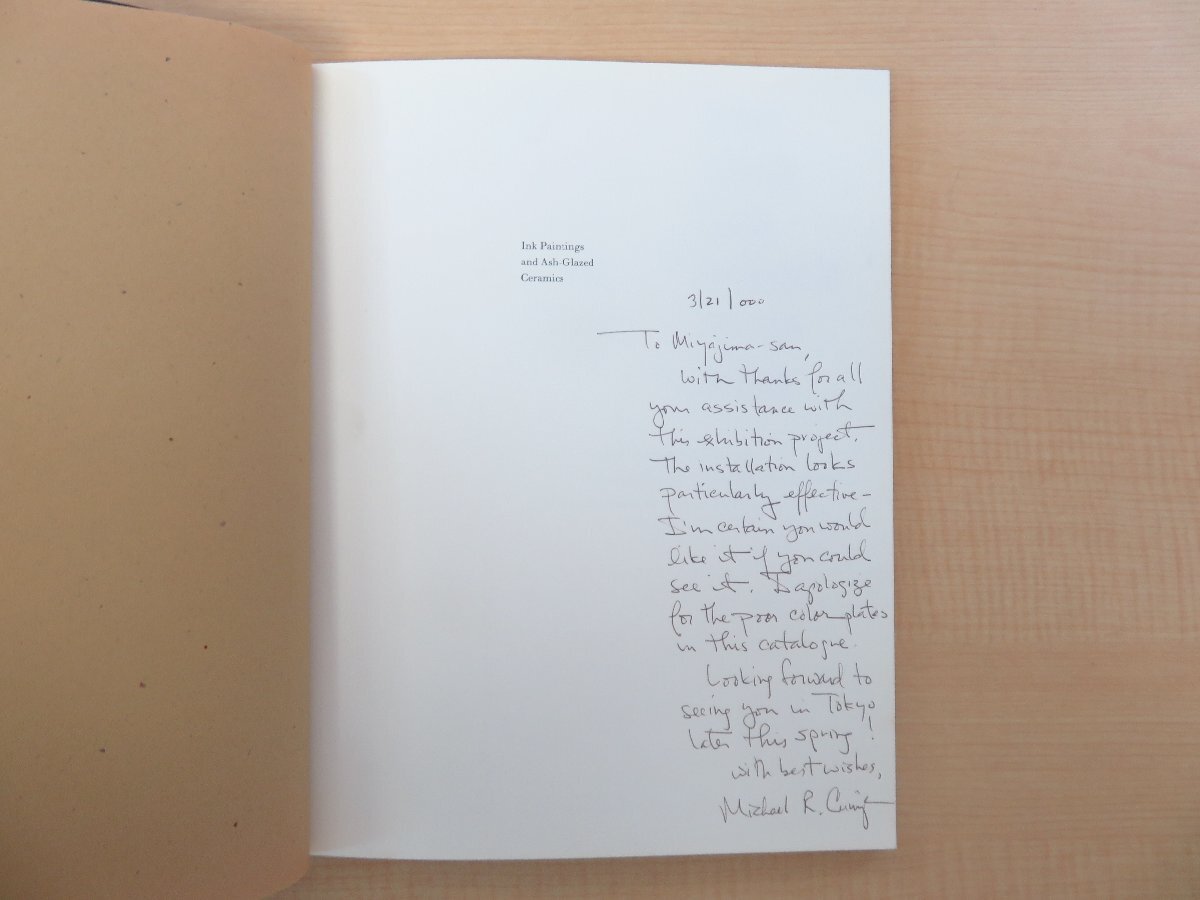 Ink Paintings
and Ash-Glazed
Ceramics
3/21/000
To Miyajima-san,
with thanks for all
your assistance with
this exhibition project.
The installation looks
particularly effective–
I'm certain you would
like it if you could
see it. I apologize
for the poor color plates
in this catalogue.
Looking forward to
seeing you in Tokyo
later this spring!
with best wishes,
Michael R.